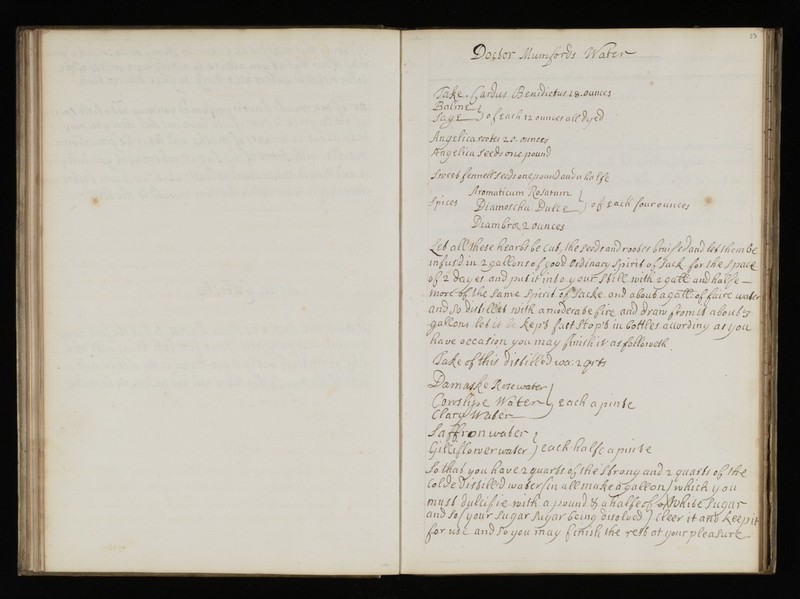 53
Doctor Mumfords Water
Take. Cardus Benedictus 18. ounces
Balme
Sage } of each 12 ounces all dryed
Angelica rootes 20. ounces
Angelica seeds one pound
Sweet fennell seeds one pound and a halfe
Spices
Aromaticum Rosatum
Diamoschu Dulce } of each four ounces
Diambra 2 ounces
Let all these hearbs be cut, the seeds and rootes bruised and let them be
infused in 2 gallons of good Ordinary Spirit of Sack for the space
of 2 dayes and put it into your still with 2 gall: and halfe
more of the same Spirit of Sacke. and about a gall: of faire water
and so distill it with a moderate fire and draw from it about 3
gallons let it be kept fast stop'd in bottles according as you
have occasion you may finish it as followeth
Take of this distilled wa: 2 qrts
Damaske Rose water
Cowslipe Water } each a pinte
Clary Water
Saffron water
Gilliflower water } each halfe a pinte
So that you have 2 quarts of the strong and 2 quarts of the
Colde distilled water (in all make a gallon) which you
must dulcifie with a pound & a halfe of white sugar
and so (your sugar sugar being disolved) cleer it and keep it
for use and so you may finish the rest at your pleasure